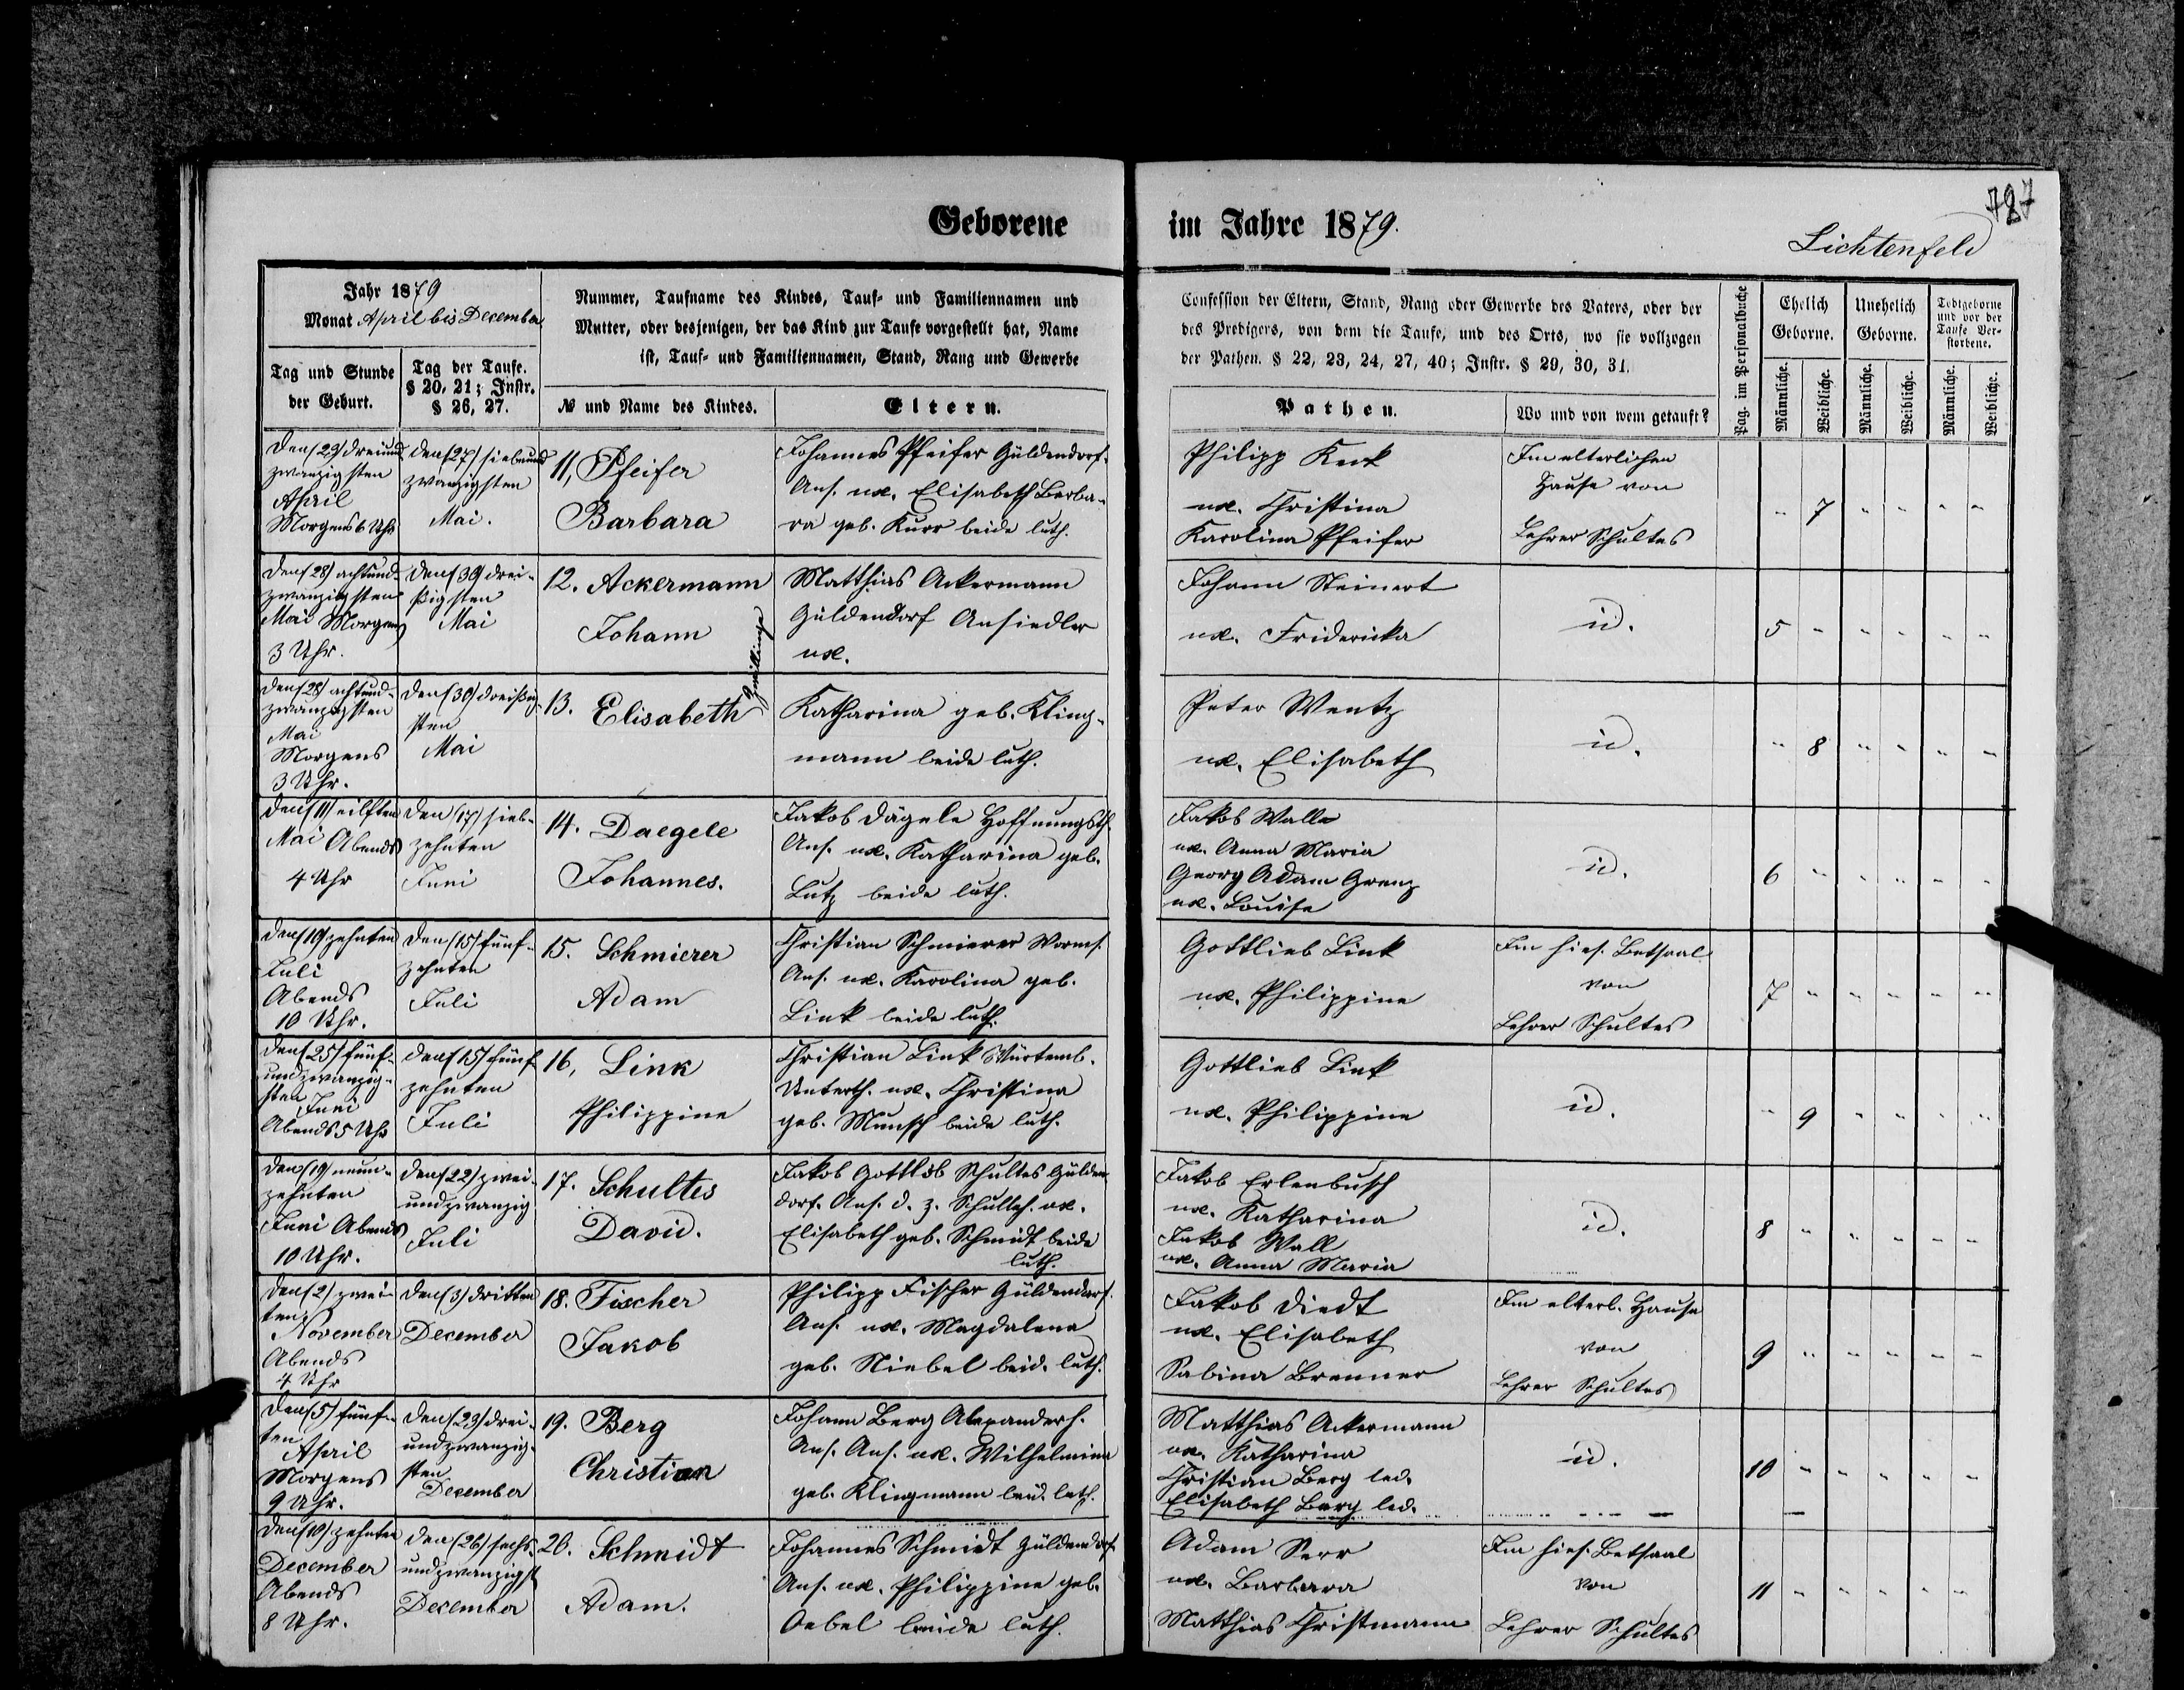 787
Geborene im Jahre 1879.
Lichtenfeld
Jahr 1879
Monat April bis December
Tag und Stunde
der Geburt.
Tag der Taufe.
§ 20, 21; Instr.
§ 26, 27.
Nummer, Taufname des Kindes, Tauf- und Familiennamen und
Mutter, oder desjenigen, der das Kind zur Taufe vorgestellt hat, Name
ist, Tauf- und Familiennamen, Stand, Rang und Gewerbe
№ und Name des Kindes.
Eltern.
Confession der Eltern, Stand, Rang oder Gewerbe des Vaters, oder der
des Predigers, von dem die Taufe, und des Orts, wo sie vollzogen
der Pathen. § 22, 23, 24, 27, 40; Instr. § 29, 30, 31.
Pathen.
Wo und von wem getauft?
Pag. im Personalbuche
Ehelich
Geborne.
Unehelich
Geborne.
Todtgeborne
und vor der
Taufe Ver-
storbene.
Männliche.
Weibliche.
Männliche.
Weibliche.
Männliche.
Weibliche.
Den (23) dreiund
zwanzigsten
April
Morgens 6 Uhr
Den (27) siebenund
zwanzigsten
Mai.
11, Pfeifer
Barbara
Johannes Pfeifer Güldendorf.
Ans. ux. Elisabeth Barba-
ra geb. Kurr beide luth.
Philipp Keck
ux. Christina
Karolina Pfeifer
Im elterlichen
Hause von
Lehrer Schultes
" 7 " " " "
Den (28) achtund-
zwanzigsten
Mai Morgens
3 Uhr.
Den (30) drei-
ßigsten
Mai
12. Ackermann
Johann
Zwillinge
Matthias Ackermann
Güldendorf Ansiedler
ux.
Johann Steinert
ux. Fridericka
id.
5 " " " " "
Den (28) achtund-
zwanzigsten
Mai
Morgens
3 Uhr.
Den (30) dreißig-
sten
Mai
13. Elisabeth
Katharina geb. Kling-
mann beide luth.
Peter Wentz
ux. Elisabeth
id.
" 8 " " " "
Den (11) eilften
Mai Abends
4 Uhr
Den (17) sieb-
zehnten
Juni
14. Daegele
Johannes.
Jakob Dägele Hoffnungsth.
Ans. ux. Katharina geb.
Lutz beide luth.
Jakob Walle
ux. Anna Maria
Georg Adam Grenz
ux. Louise
id.
6 " " " " "
Den (10) zehnten
Juli
Abends
10 Uhr.
Den (15) fünf-
zehnten
Juli
15. Schmierer
Adam
Christian Schmierer Worms.
Ans. ux. Karolina geb.
Link beide luth.
Gottlieb Link
ux. Philippine
Im hies. Betsaal
von
Lehrer Schultes
7 " " " " "
Den (25) fünf-
undzwanzig-
sten Juni
Abends 5 Uhr
Den (15) fünf-
zehnten
Juli
16, Link
Philippine
Christian Link Würtemb.
Unterth. ux. Christina
geb. Munsch beide luth.
Gottlieb Link
ux. Philippine
id.
" 9 " " " "
Den (19) neun-
zehnten
Juni Abends
10 Uhr.
Den (22) zwei-
undzwanzig
Juli
17. Schultes
David.
Jakob Gottlob Schultes Gülden-
dorf. Ans. d. z. Schulleh. ux.
Elisabeth geb. Schmidt beide
luth.
Jakob Erlenbusch
ux. Katharina
Jakob Wall
ux. Anna Maria
id.
8 " " " " "
Den (2) zwei-
ten
November
Abends
4 Uhr
Den (3) dritten
December
18. Fischer
Jakob
Philipp Fischer Güldendorf
Ans. ux. Magdalena
geb. Niebel beid. luth.
Jakob Diedt
ux. Elisabeth
Sabina Brenner
Im elterl. Hause
von
Lehrer Schultes
9 " " " " "
Den (5) fünf-
ten April
Morgens
9 Uhr.
Den (23) drei-
undzwanzig-
sten
December
19. Berg
Christian
Johann Berg Alexanderh.
Ans. Ans. ux. Wilhelmina
geb. Klingmann beid. luth.
Matthias Ackermann
ux. Katharina
Christian Berg led.
Elisabeth Berg led.
id.
10 " " " " "
Den (10) zehnten
December
Abends
8 Uhr.
Den (26) sechs-
undzwanzigst
December
20. Schmidt
Adam.
Johannes Schmidt Güldendorf
Ans. ux. Philippine geb.
Oebel beide luth.
Adam Serr
ux. Barbara
Matthias Christmann
Im hies. Betsaal
von
Lehrer Schultes
11 " " " " "